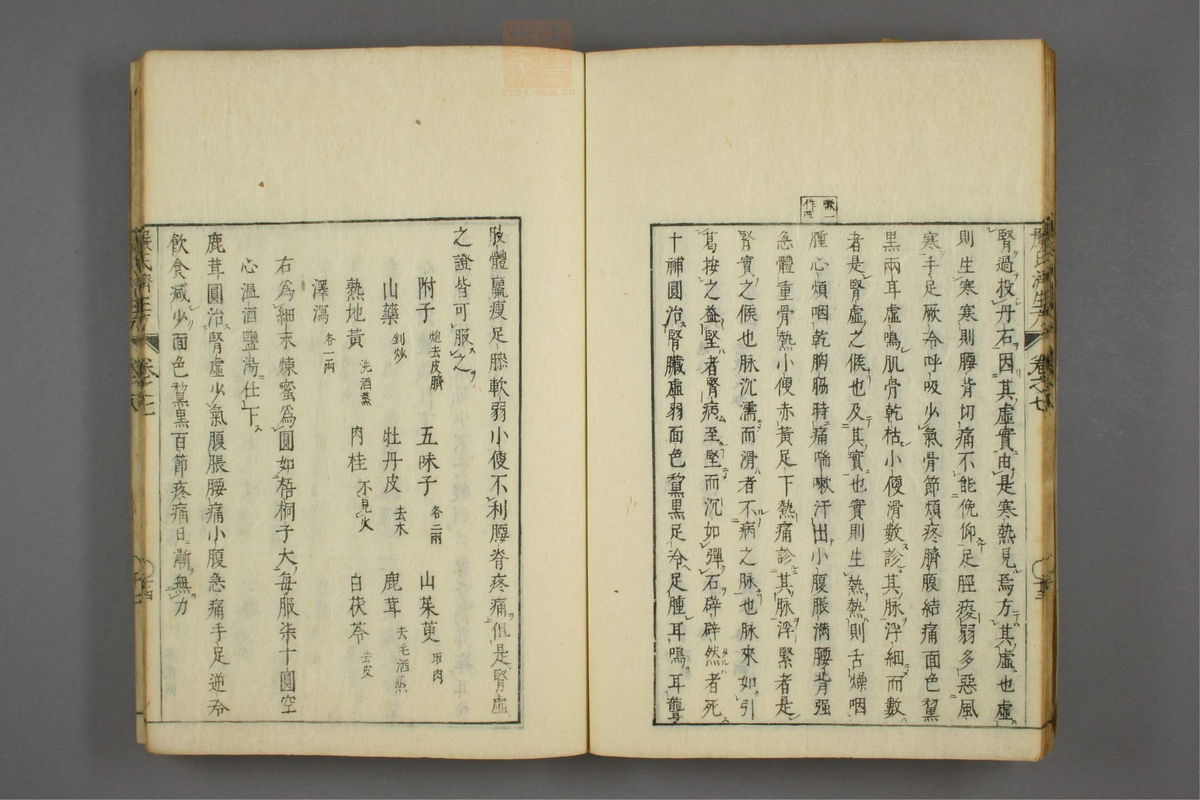 腎過投丹石因其虛實由是寒熱見焉方其虛也虛
則生寒寒則腰背切痛不能俛仰足脛痠弱多惡風
寒手足厥冷呼吸少氣骨節煩疼臍腹結痛面色黧
黑兩耳虛鳴肌骨乾枯小便滑數診其脉浮細而數
者是腎虛之候也及其實也實則生熱熱則舌燥咽
腫心煩咽乾胸肠時痛喘嗽汗出小腹脹滿腰背强
急體重骨熱小便赤黃足下熱痛診其脉浮緊者是
腎實之候也脉沉濡而滑者不病之脉也脉來如引
葛按之益堅者腎病至堅而沉如彈石辟辟然者死
十補圓治腎臟虛弱面色黧黑足冷足腫耳鳴耳聾
嗽一
作咳
嚴氏濟生方
卷之七
肢體羸瘦足膝軟弱小便不利腰脊疼痛但是腎虛
之證皆可服之
附子 炮去皮臍 五味子 各二兩 山茱萸 取肉
山藥 剉炒 牡丹皮 去木 鹿茸 去毛酒蒸
熟地黃 洗酒蒸 肉桂 不見火 白茯苓 去皮
澤瀉 各一兩
右爲細末煉蜜爲圓如梧桐子大每服柒十圓空
心溫酒鹽湯任下
鹿茸圓治腎虛少氣腹脹腰痛小腹急痛手足逆冷
飲食减少面色黧黑百節疼痛日漸無力